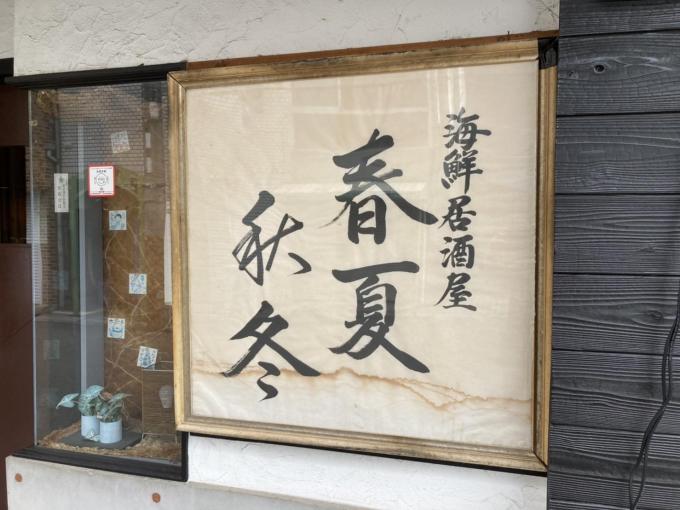 海鮮居酒屋
春夏
秋冬